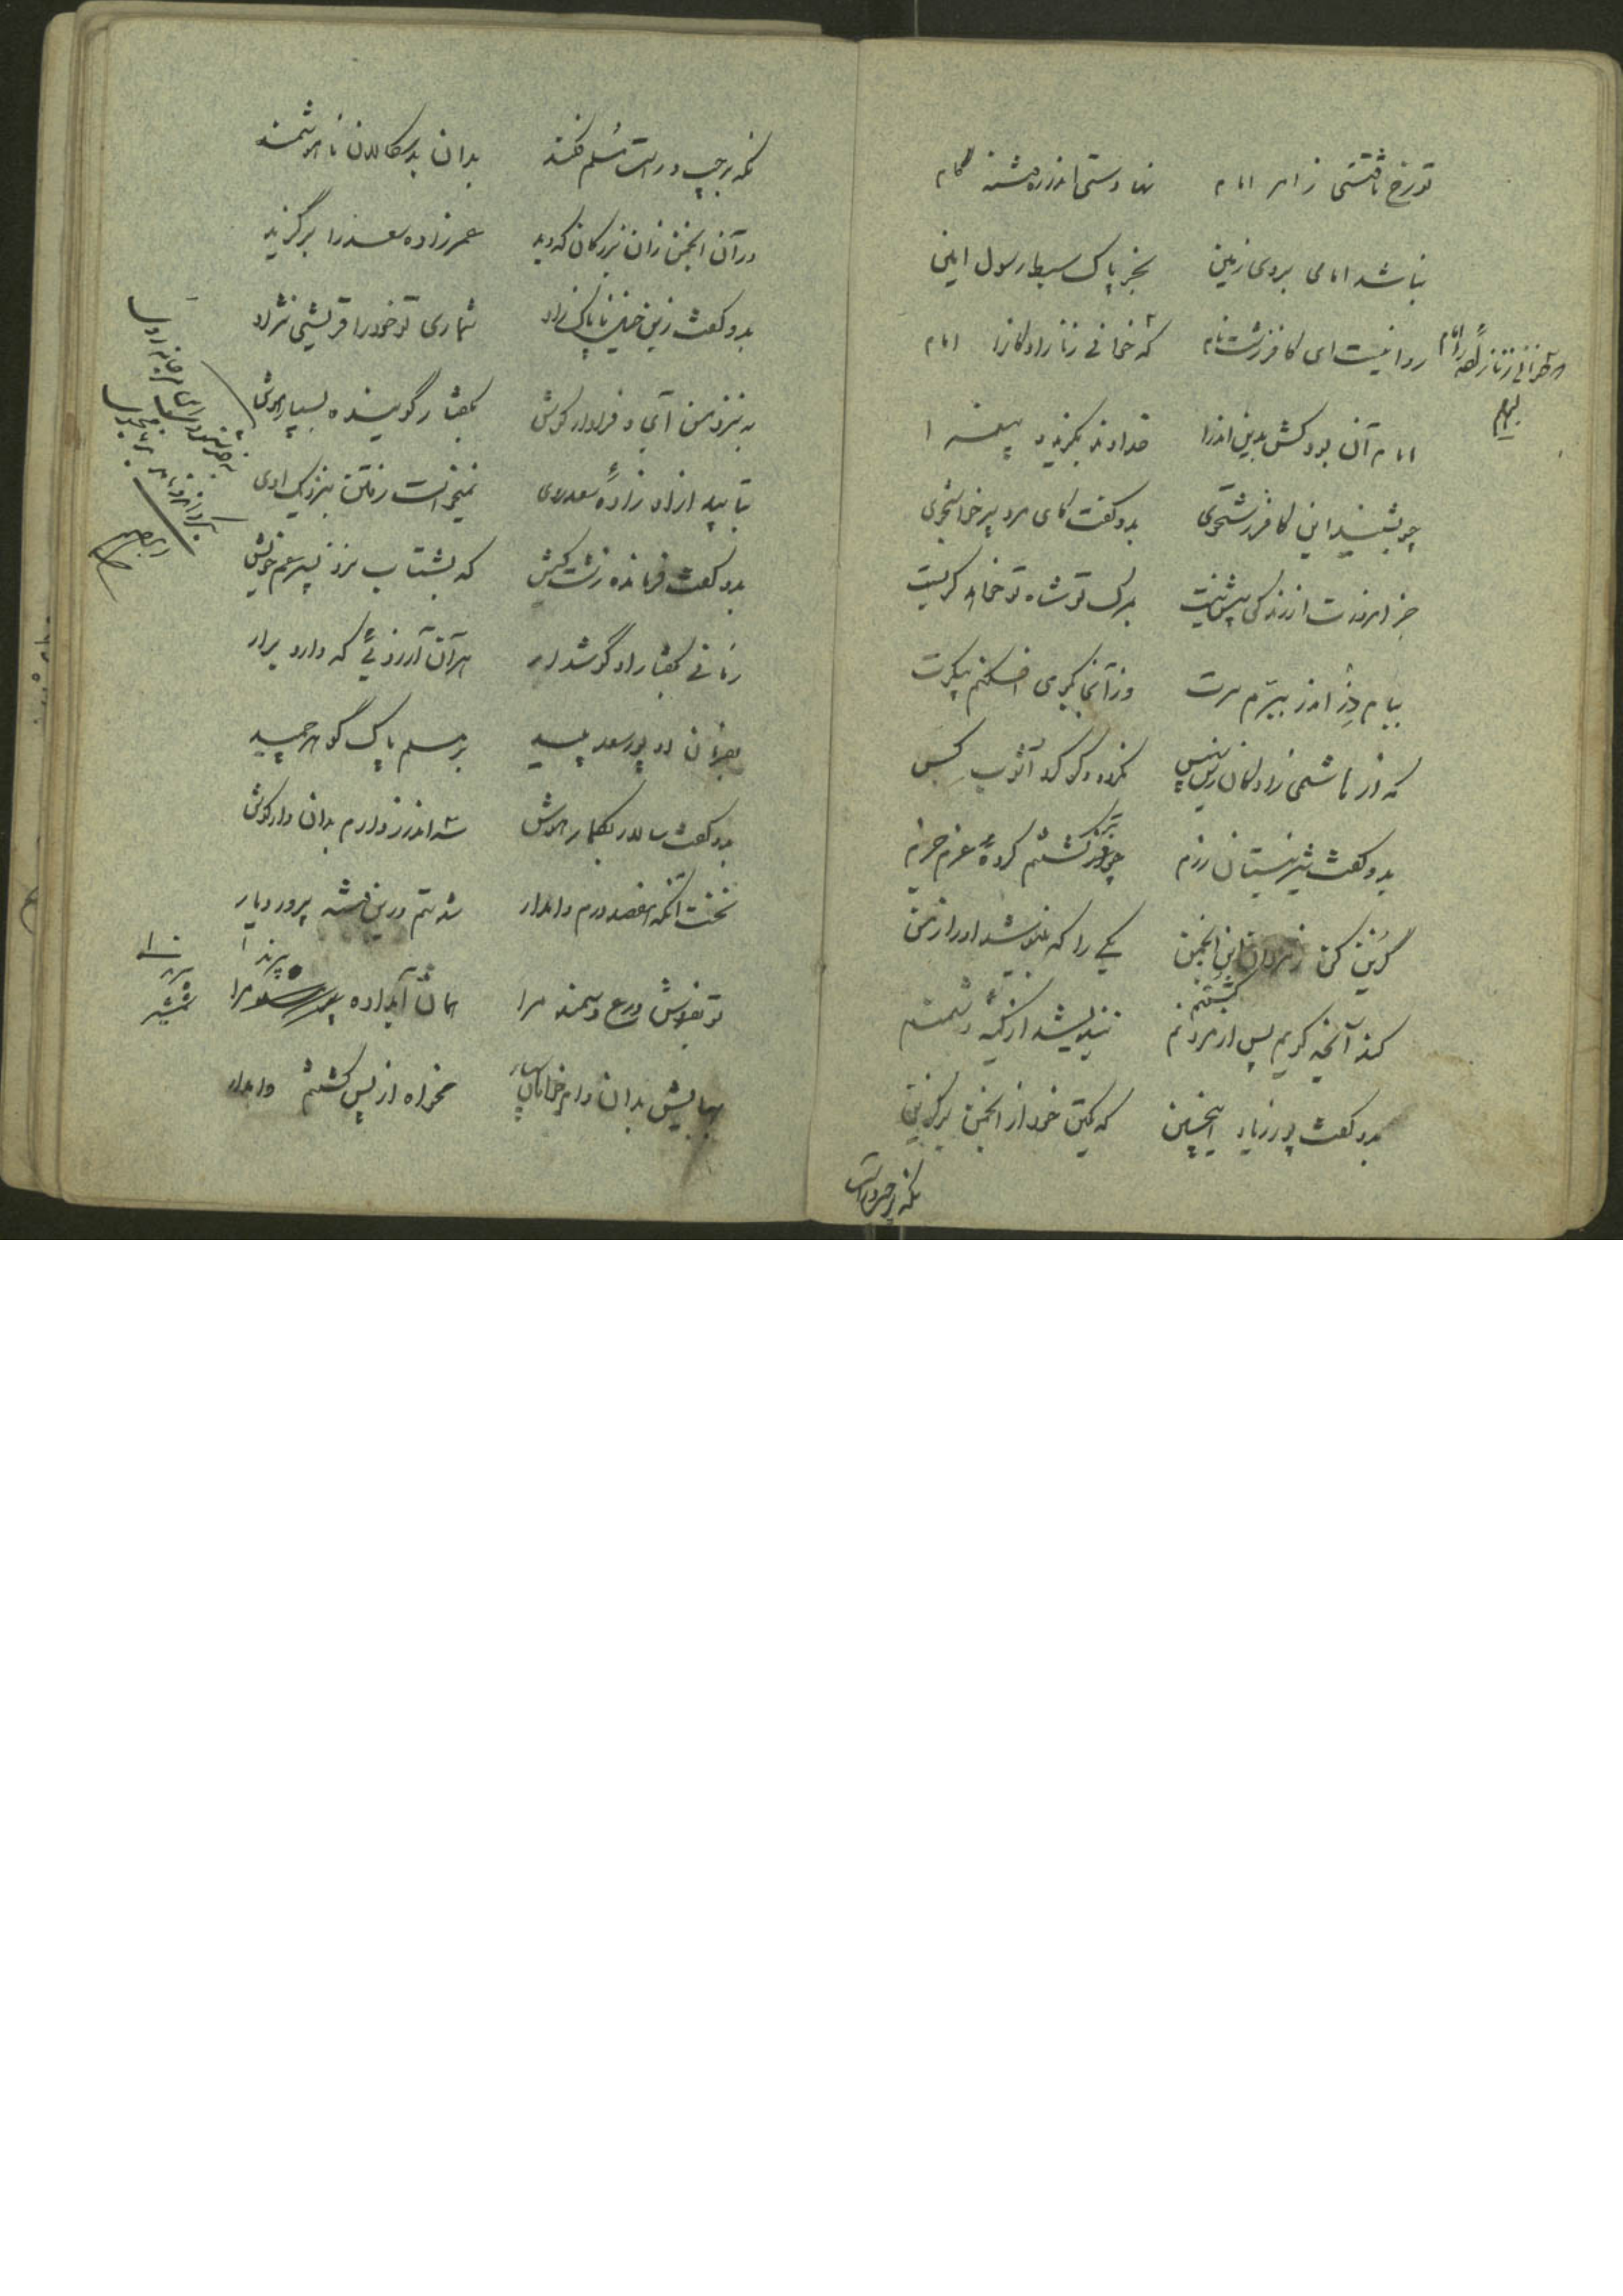 تو رخ تافتستی ز امر امام نهادستی اندر ره فتنه گام
نباشد امامی بروی زمین بجز پاک سبط رسول امین
روا نیست ای کافر زشت نام که خوانی زنازادگانرا امام
امام آن بود کش بدین اندرا خداوند بگزید و پیغمبرا
چو بشنید این کافر زشتخوی بدو گفت کای مرد پرخاشجوی
جز امروزت از زندگی بیش نیست بمرگ تو شاه تو خواهد گریست
ببام دژ اندر ببرم سرت وز آنجا بزیر افکنم پیکرت
که از هاشمی زادگان زین سپس نگردد دگر گرد آشوب کس
بدو گفت شیر نیستان رزم چو بر کشتنم کردهٔ عزم جزم
گزین کن ز مردان این انجمن یکی را که نیوشد اندرز من
کند آنچه گویم پس از مردنم نیندیشد از کینهٔ دشمنم
کشتنم
بدو گفت پور زیاد اینچنین که یکتن خود از انجمن برگزین
نگه بر چپ و راست
نگه بر چپ و راست مسلم فکند بدان بدسگالان ناهوشمند
در آن انجمن زان بزرگان که دید عمرزاده سعد را برگزید
بدو گفت زین خیل ناپاک زاد شماری تو خود را قریشی نژاد
به نزد من آی و فرادار گوش بگفتار گوینده بسپار هوش
بتابید ازو زادهٔ سعد روی نمیخواست رفتن بنزدیک اوی
بدو گفت فرمانده زشت کیش که بشتاب نزد پسر عم خویش
زمانی بگفتار او گوش دار هر آن آرزوئی که دارد برار
بفرمان او پور سعد پلید بر مسلم پاک گوهر چمید
بدو گفت سالار بگمار هوش سه اندرز دارم بدان دار گوش
نخست آنکه هفصد درم وامدار شدستم درین فتنه پرور دیار
تو بفروش درع و سمند مرا همان آبداده پرند مرا
شمشیر
بهایش بدان وام خواهان سپار مخواه از پس کشتنم وامدار